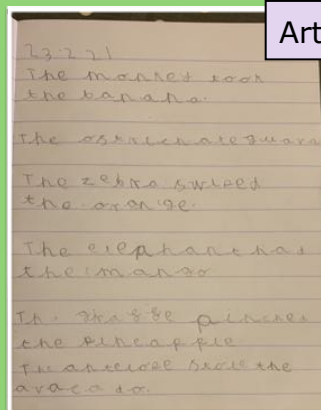 Art
23.2.21
The monkey took
the banana.
The ostrich ate guava
The zebra swiped
the orange.
The elephant had
the mango
pinched
the pineapple
The antelope stole the
avacado.